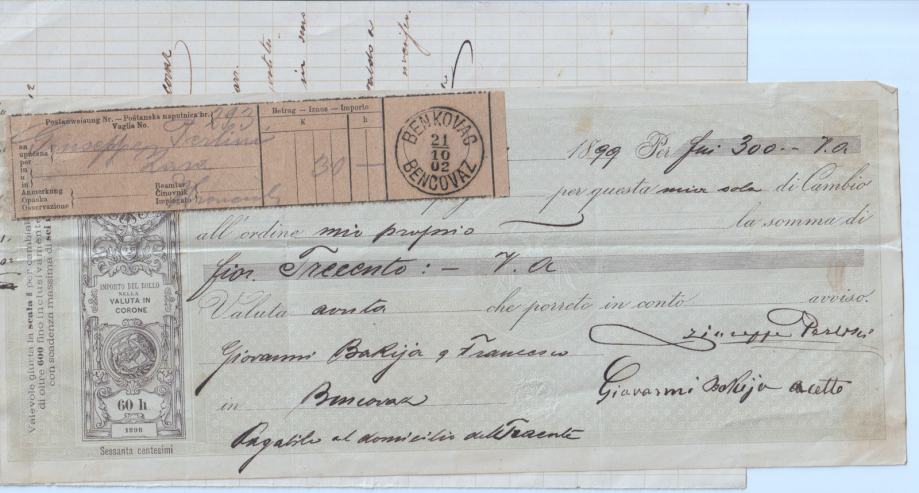 Postanweisung Nr. — Poštanska naputnica br. 293
Vaglia No.
Betrag — Iznos — Importo
K h
an
upućena
per
in
u
in
Giuseppe
Zara
30 —
Anmerkung
Opaska
Osservazione
Beamter
Činovnik
Impiegato
BENKOVAC
21
10
02
BENCOVAZ
1899 Per fni 300.— V.a
per questa mia sola di Cambio
all'ordine mio proprio la somma di
fior. Trecento :— V.A
Valuta avuta che porrete in conto avviso.
Giuseppe
Giovanni Bakija q Francesco
Giovanni Bakija accetto
in Bencovaz
Pagabile al domicilio dell Traente
Valevole giusta la scala I per cambiali
di oltre 600 fino inclusivamente
con scadenza massima di sei
IMPORTO DEL BOLLO
NELLA
VALUTA IN
CORONE
60 h
1898
Sessanta centesimi